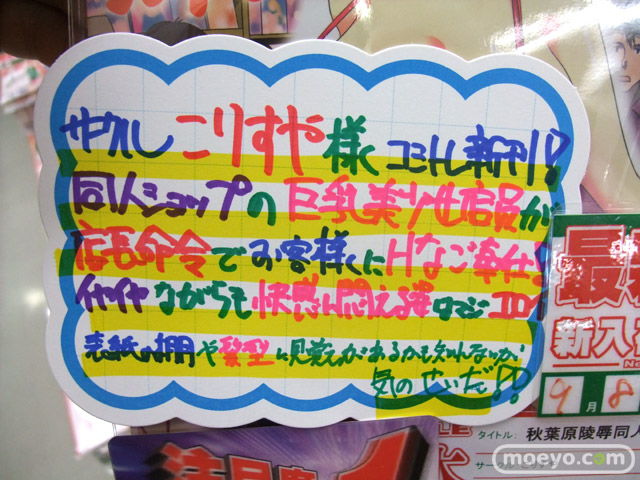 サークル こりすや様 コミトレ新刊!!
同人ショップの巨乳美少女店員が
店長命令でお客様にHなご奉仕!
イヤイヤながらも快感に悶える姿はマジエロ!
表紙の棚や髪型に見覚えがあるかも知れないが
気のせいだ!!
最
新入
9月8
タイトル: 秋葉原陵辱同人
サークル
注目度
1
moeyo.com